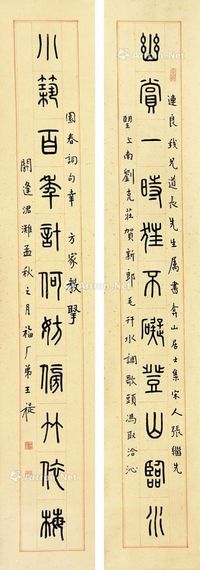 連良我兄道長先生屬書弇山居士集宋人張繼先
幽賞一時狂不礙登山臨水
望江南劉克莊賀新郎毛幵水調歌頭馮取洽沁
園春詞句幸 方家教擊
小築百年計何妨傍竹依梅
閼逢涒灘孟秋之月福厂弟王禔